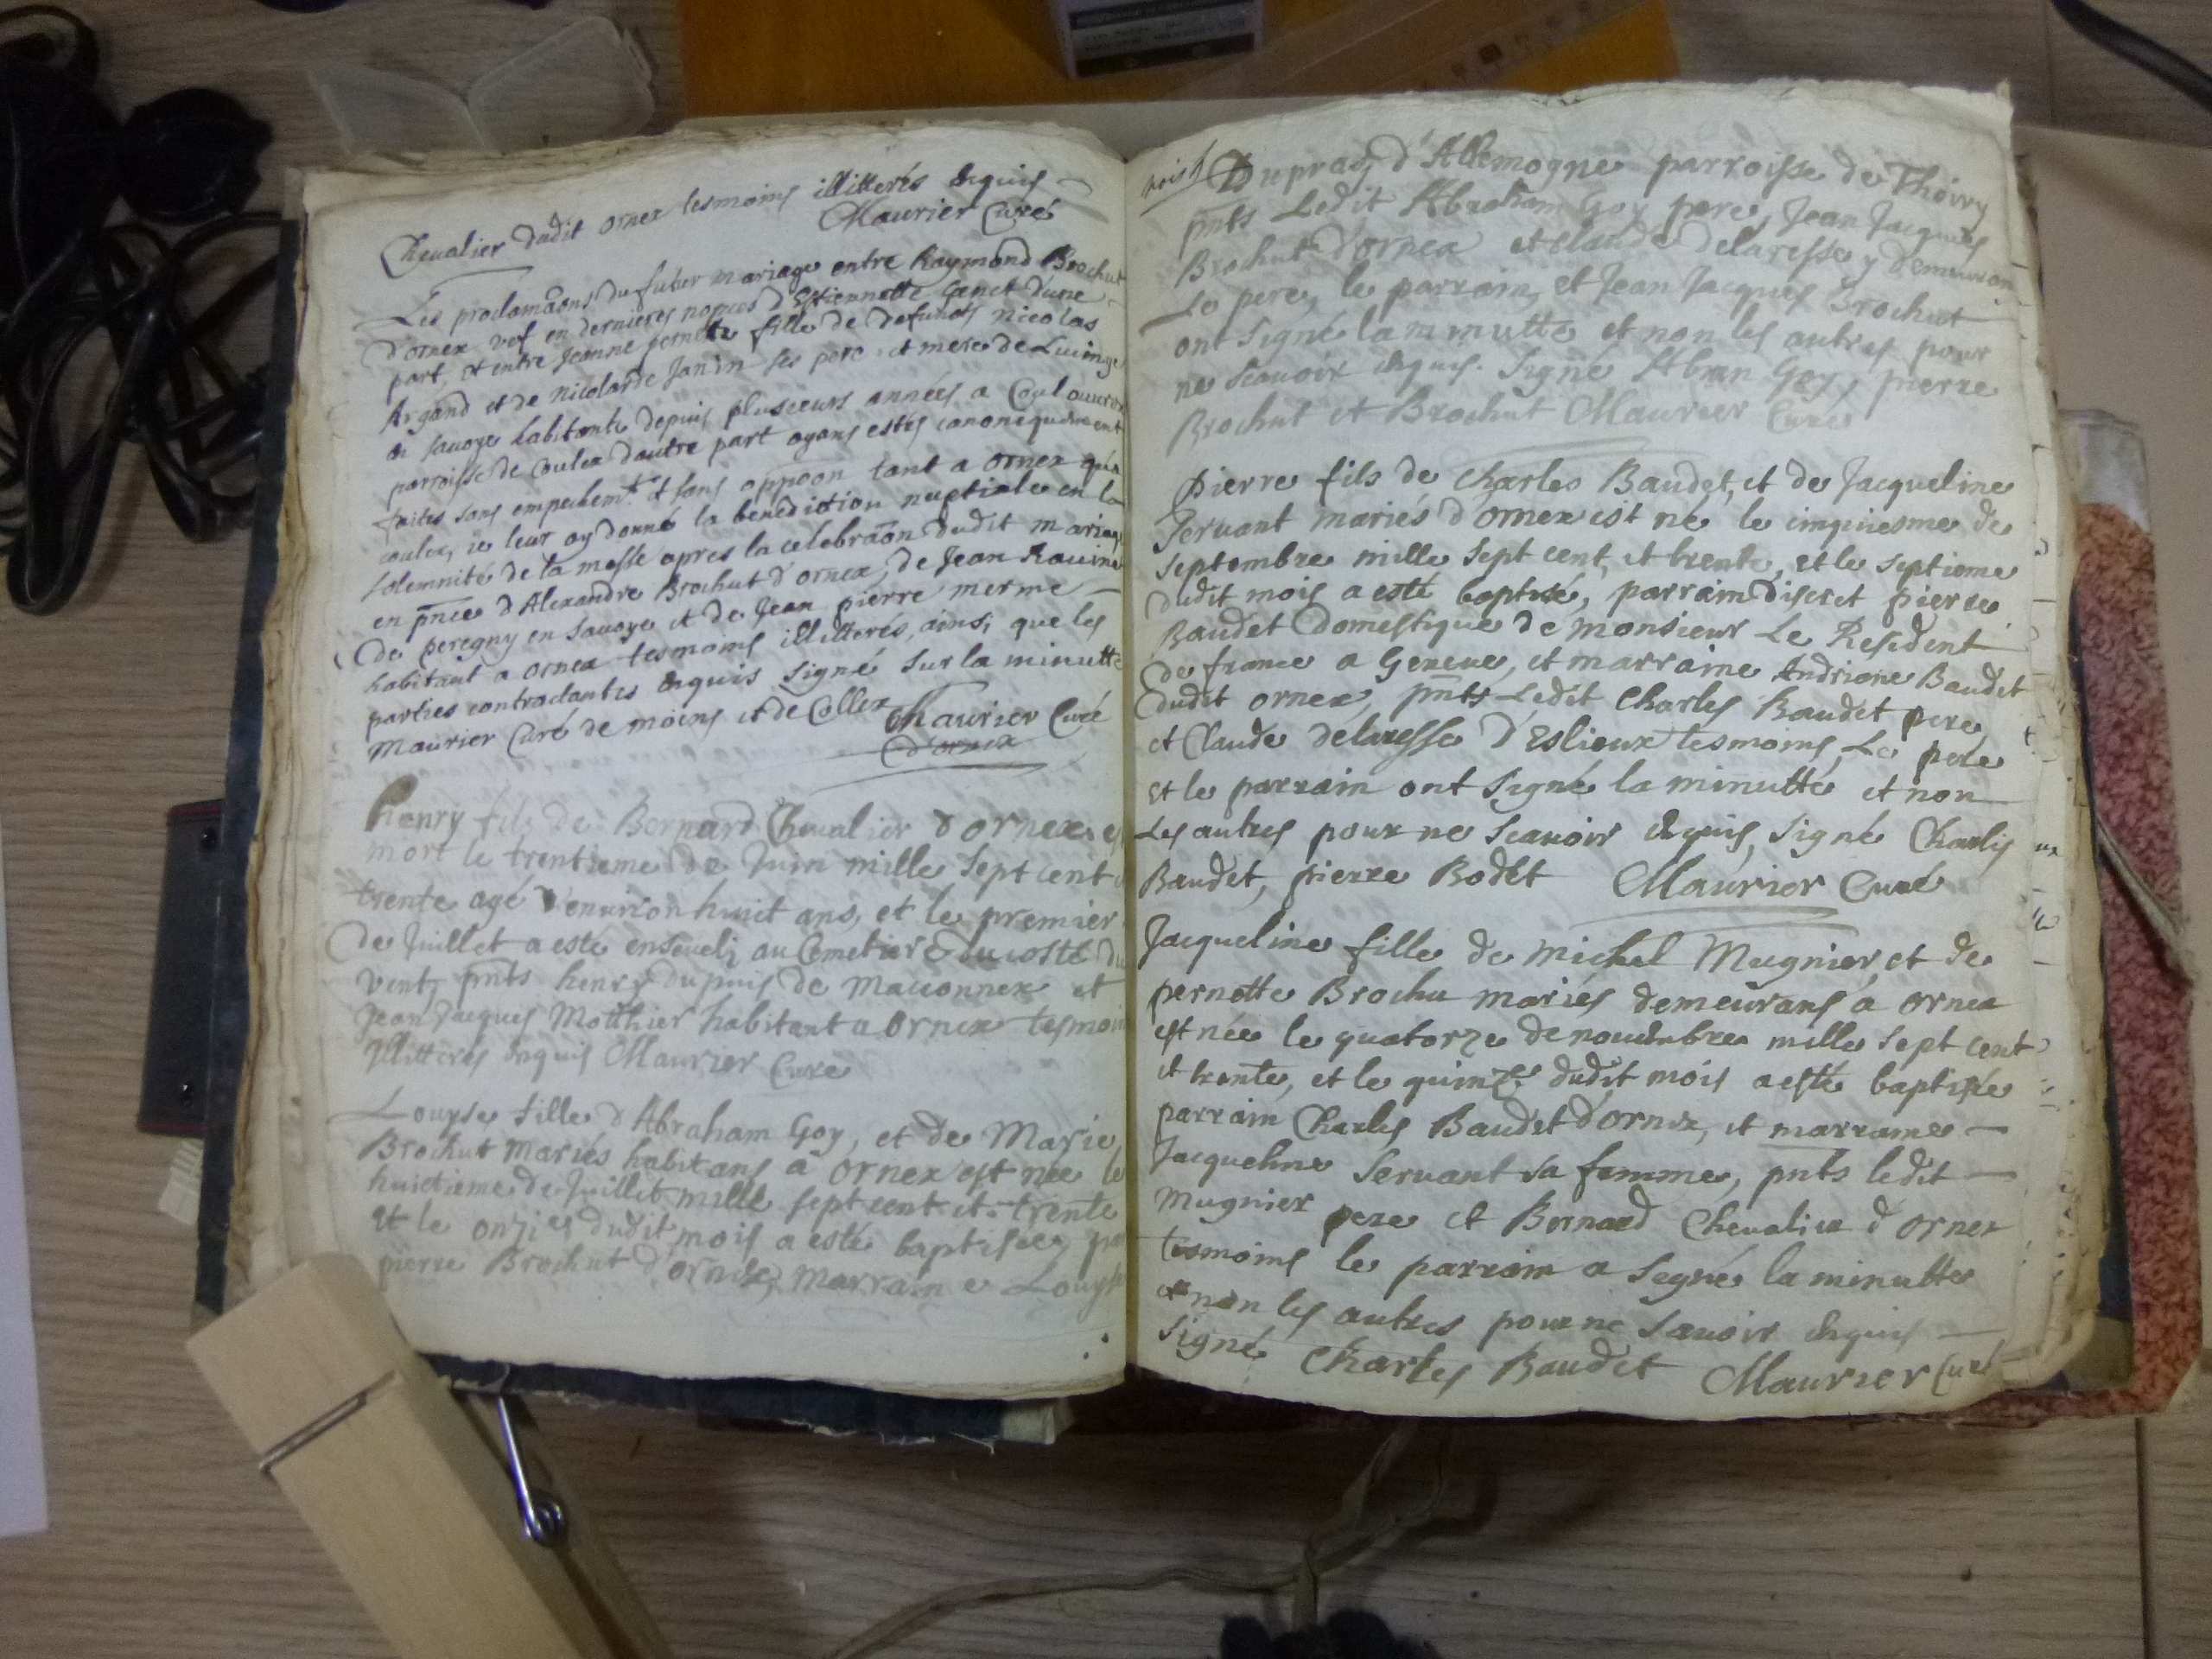 Chevalier dudit ornex tesmoins illitterés enquis
Maurier Curé
Les proclamãons du futur mariage entre Raymond Brochut
d'ornex vef en dernieres nopces d'Estiennette Genet d'une
part, et entre Jeanne pernette fille de defuncts nicolas
Argand et de nicolarde Janin ses pere et mere de Lucinge
en savoye habitante depuis pluseeurs années a Coulouvrex
parroisse de Coulex d'autre part ayans estés canoniquement
faites sans empechemt. et sans oppoon tant a ornex qu'a
coulex, je leur ay donné la benediction nuptiale en la
solemnité de la messe apres la celebraõn dudit mariage
en pñce d'Alexandre Brochut d'ornex, de Jean Ravine
de peregny en savoye et de Jean pierre merme
habitant a ornex tesmoins illitterés, ainsi que les
parties contractantes enquis signé sur la minutte
Maurier Curé de moins et de Collex Maurier Curé
d'ornex
henry fils de Bernard Chevalier d'ornex. est
mort le trentieme de Juin mille sept cent
trente agé d'environ huit ans, et le premier
de Juillet a esté enseveli au Cemetiere du costé du
vent, pñts henry dupuis de Maconnex et
Jean Jacques Motthier habitant a Ornex tesmoins
Illitterés enquis Maurier Curé
Louyse fille d'Abraham Goy, et de Marie
Brochut mariés habitans a ornex est née le
huictieme de Juillet mille sept cent et trente
et le onzies dudit mois a esté baptisee, par
pierre Brochut d'ornex, marraine Louyse
Dupraz d'Allemogne parroisse de Thoiry
pñts Ledit Abraham Goy pere, Jean Jacques
Brochut d'ornex et claude delaresse y demeuran
Le pere, le parrain, et Jean Jacques Brochut
ont signé la minutte et non les autres pour
ne scavoir enquis. signé Abram Goy, pierre
Brochut et Brochut Maurier Curé
Pierre fils de Charles Baudet, et de Jacqueline
Servant mariés d'ornex est né le cinquiesme de
septembre mille sept cent, et trente, et le septieme
dudit mois a esté baptisé, parrain discret pierre
Baudet domestique de monsieur Le Resident
de france a Geneve, et marraine Andriane Baudet
dudit ornex, pñts Ledit Charles Baudet pere,
et Claude delaresse d'Eslieux tesmoins, Le pere
et le parrain ont signé la minutte et non
Les autres pour ne scavoir enquis, signé Charles
Baudet, pierre Bodet Maurier Curé
Jacqueline fille de michel Mugnier, et de
pernette Brochu mariés demeurans a ornex
est née le quatorze de novembre mille sept cent
et trente, et le quinze dudit mois a esté baptisée
parrain Charles Baudet d'ornex, et marraine
Jacqueline Servant sa femme, pñts ledit
Mugnier pere et Bernard Chevalier d'ornex
tesmoins le parrain a signé la minutte
et non les autres pour ne scavoir enquis
signé Charles Baudet Maurier Curé